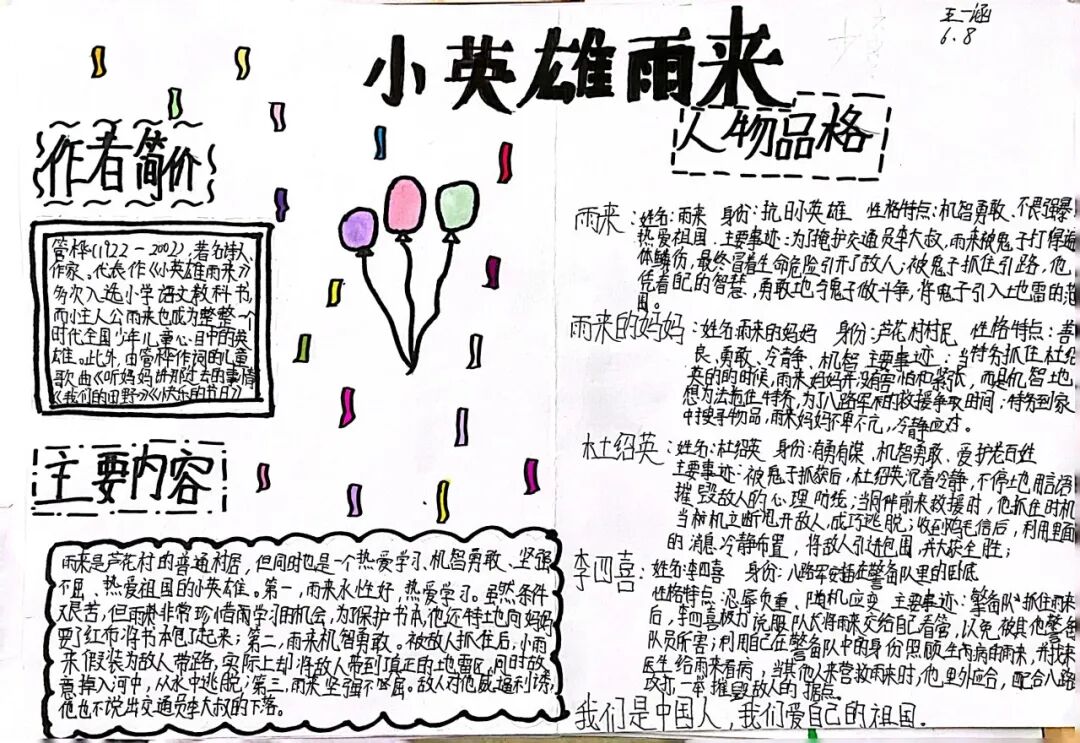 小英雄雨来
王一涵
6.8
作者简价
管桦(1922-2002),著名诗人、
作家。代表作《小英雄雨来》
多次入选小学语文教科书,
而小主人公雨来也成为整整一个
时代全国少年儿童心目中的英
雄。此外,由管桦作词的儿童
歌曲《听妈妈讲那过去的事情》
《我们的田野》《快乐的节日》
主要内容
雨来是芦花村的普通村居,但同时也是一个热爱学习、机智勇敢、坚强
不屈、热爱祖国的小英雄。第一,雨来水性好,热爱学习。虽然条件
艰苦,但雨来非常珍惜学习的机会,为了保护书本,他还特地向妈妈
要了红布将书本包了起来;第二,雨来机智勇敢。被敌人抓住后,小雨
来假装为敌人带路,实际上却将敌人带到了真正的地雷区,同时故
意掉入河中,从水中逃脱;第三,雨来坚强不屈。敌人对他威逼利诱,
他也不说出交通员李大叔的下落。
人物品格
雨来:姓名:雨来 身份:抗日小英雄 性格特点:机智勇敢、不畏强暴
热爱祖国.主要事迹:为了掩护交通员李大叔,雨来被鬼子打得遍
体鳞伤,最终冒着生命危险引开了敌人;被鬼子抓住引路,他
凭着自己的智慧,勇敢地与鬼子做斗争,将鬼子引入土地雷的范
围。
雨来的妈妈:姓名:雨来的妈妈 身份:芦花村村民 性格特点:善
良、勇敢、冷静、机智 主要事迹:当特务抓住杜绍
英的时候,雨来妈妈并没有害怕和紧张,而是机智地
想方法抱住特务,为了八路军的救援争取时间;特务到家
中搜寻物品,雨来妈妈不卑不亢,冷静应对。
杜绍英:姓名:杜绍英 身份:有勇有谋、机智勇敢、爱护老百姓
主要事迹:被鬼子抓获后,杜绍英沉着冷静,不停地用言语
摧毁敌人的心理防线;当同伴前来救援时,他抓住时机
当机立断甩开敌人,成功逃脱;收到鸡毛信后,利用里面
的消息冷静布置,将敌人引进包围,并大获全胜;
李四喜:姓名:李四喜 身份:八路军安插在警备队里的卧底
性格特点:忍辱负重、随机应变 主要事迹:警备队抓住雨来
后,李四喜极力说服队长将雨来交给自己看管,以免被其他警备
队员所害;利用自己在警备队中的身份照顾生病的雨来,并找来
医生给雨来看病,当其他人来营救雨来时,他里外应合,配合八路
攻打一举摧毁敌人的据点。
我们是中国人,我们爱自己的祖国.